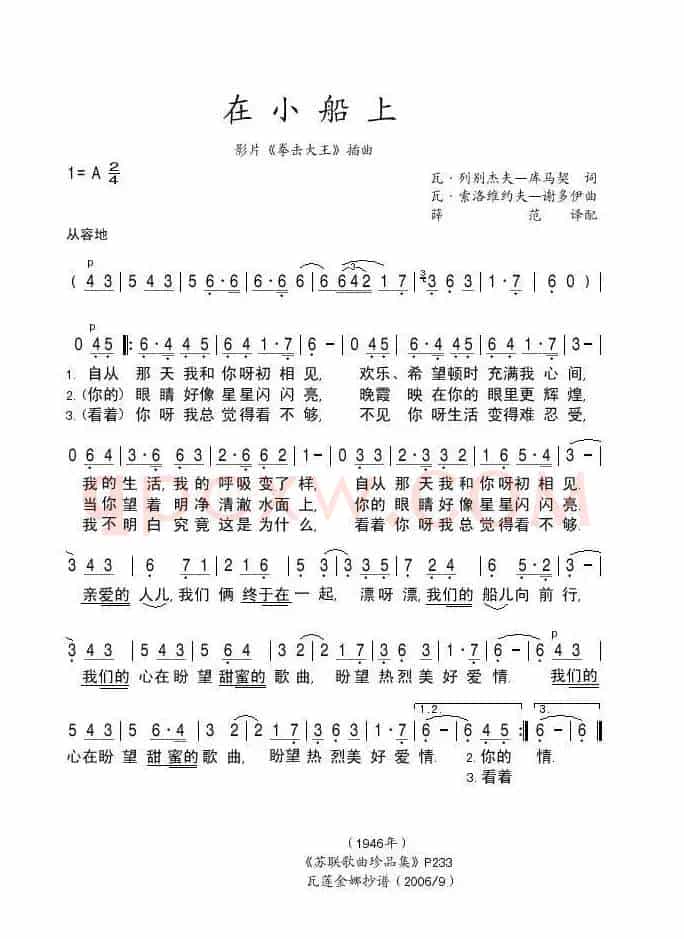 在小船上
影片《拳击大王》插曲
1=A 2/4
瓦·列别杰夫—库马契 词
瓦·索洛维约夫—谢多伊曲
薛 范 译配
从容地
p
( 4 3 | 5 4 3 | 5 · 6 | 6 · 6 6 | 6 6 4 2 1 7 | 3 3 6 3 | 1 · 7 | 6 0 ) |
p
0 4 5 |: 6 · 4 4 5 | 6 4 1 · 7 | 6 – | 0 4 4 5 | 6 · 4 4 5 | 6 4 6 · 4 | 3 – |
1. 自从 那天我和你呀初相见, 欢乐、希望顿时充满我心间,
2.(你的)眼睛好像星星闪闪亮, 晚霞映在你的眼里更辉煌,
3.(看着)你呀我总觉得看不够, 不见你呀生活变得难忍受,
0 6 4 | 3 · 6 6 3 | 2 · 6 6 2 | 1 – | 0 3 3 | 2 · 7 7 2 | 1 · 6 6 1 | 7 – |
我的生活,我的呼吸变了样, 自从那天我和你呀初相见.
当你望着明净清澈水面上, 你的眼睛好像星星闪闪亮.
我不明白究竟这是为什么, 看着你呀我总觉得看不够.
qpcxw.com
3 4 3 | 6 6 | 7 2 1 | 2 1 6 | 5 3 | 3 3 5 | 7 2 4 | 6 6 | 5 · 2 | 3
亲爱的人儿,我们俩终于在一起, 漂呀漂,我们的船儿向前行,
3 4 3 | 5 4 3 | 5 6 4 | 3 2 | 2 1 7 | 3 6 3 | 1 · 7 | 6 – | 6 4 3 |
p
我们的心在盼望甜蜜的歌曲, 盼望热烈美好爱情. 我们的
5 4 3 | 5 6 · 4 | 3 2 | 2 1 7 | 3 6 3 | 1 · 7 | 6 – | 6 4 5 :| 6 – | 6 ||
1.2. 3.
心在盼望甜蜜的歌曲, 盼望热烈美好爱情. 2.你的 情.
3.看着
(1946年)
《苏联歌曲珍品集》P233
瓦莲金娜抄谱(2006/9)